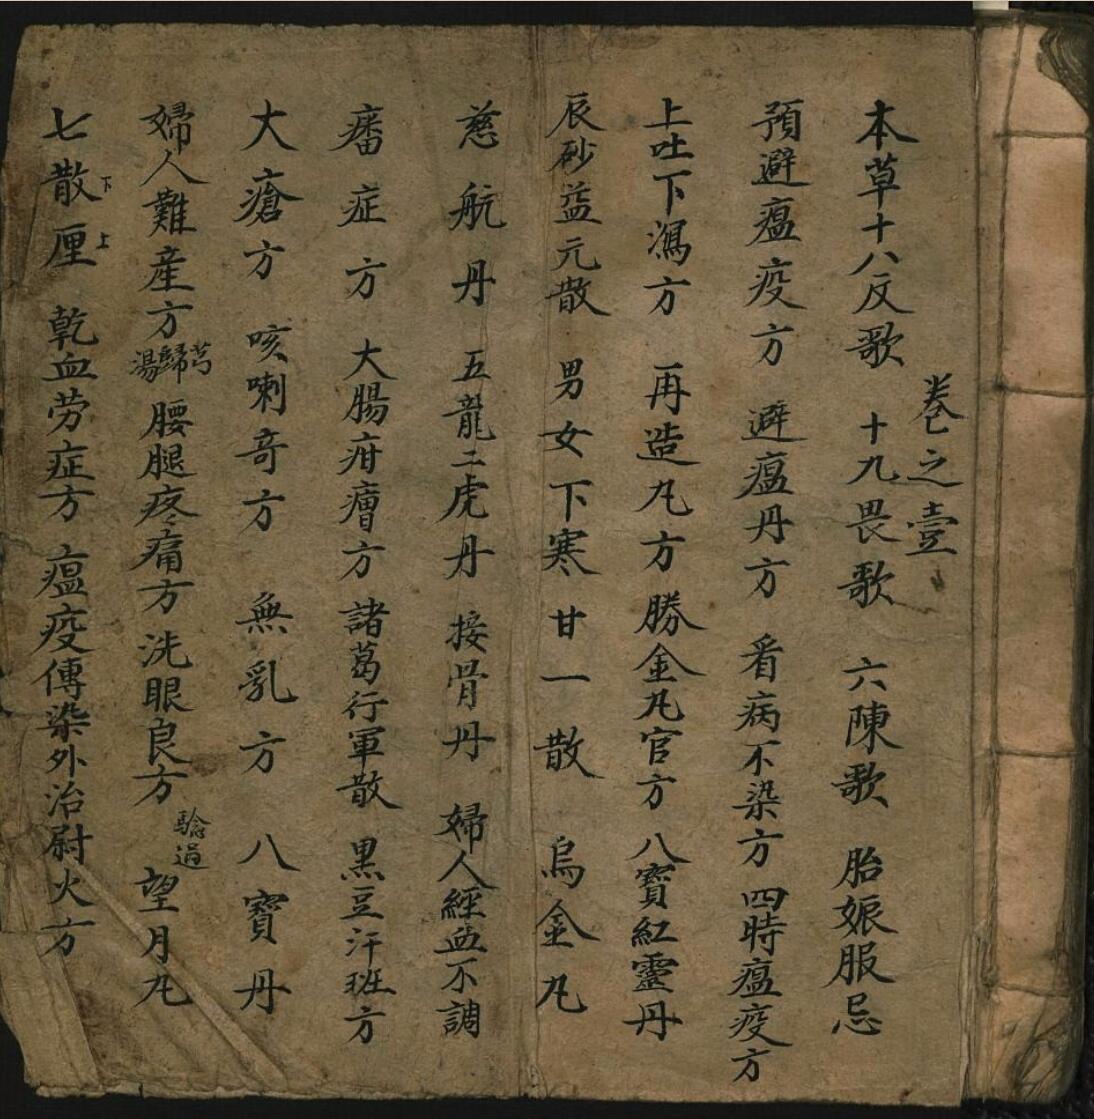 卷之壹
本草十八反歌 十九畏歌 六陳歌 胎娠服忌
預避瘟疫方 避瘟丹方 看病不染方 四時瘟疫方
上吐下瀉方 再造丸方 勝金丸官方 八寶紅靈丹
辰砂益元散 男女下寒甘一散 烏金丸
慈航丹 五龍二虎丹 接骨丹 婦人經血不調
癍症方 大腸疳㿑方 諸葛行軍散 黑豆汗班方
大瘡方 咳喇奇方 無乳方 八寶丹
婦人難產方 芎歸湯 腰腿疼痛方 洗眼良方 驗過 望月丸
七散下厘上 乾血劳症方 瘟疫傳染外治尉火方